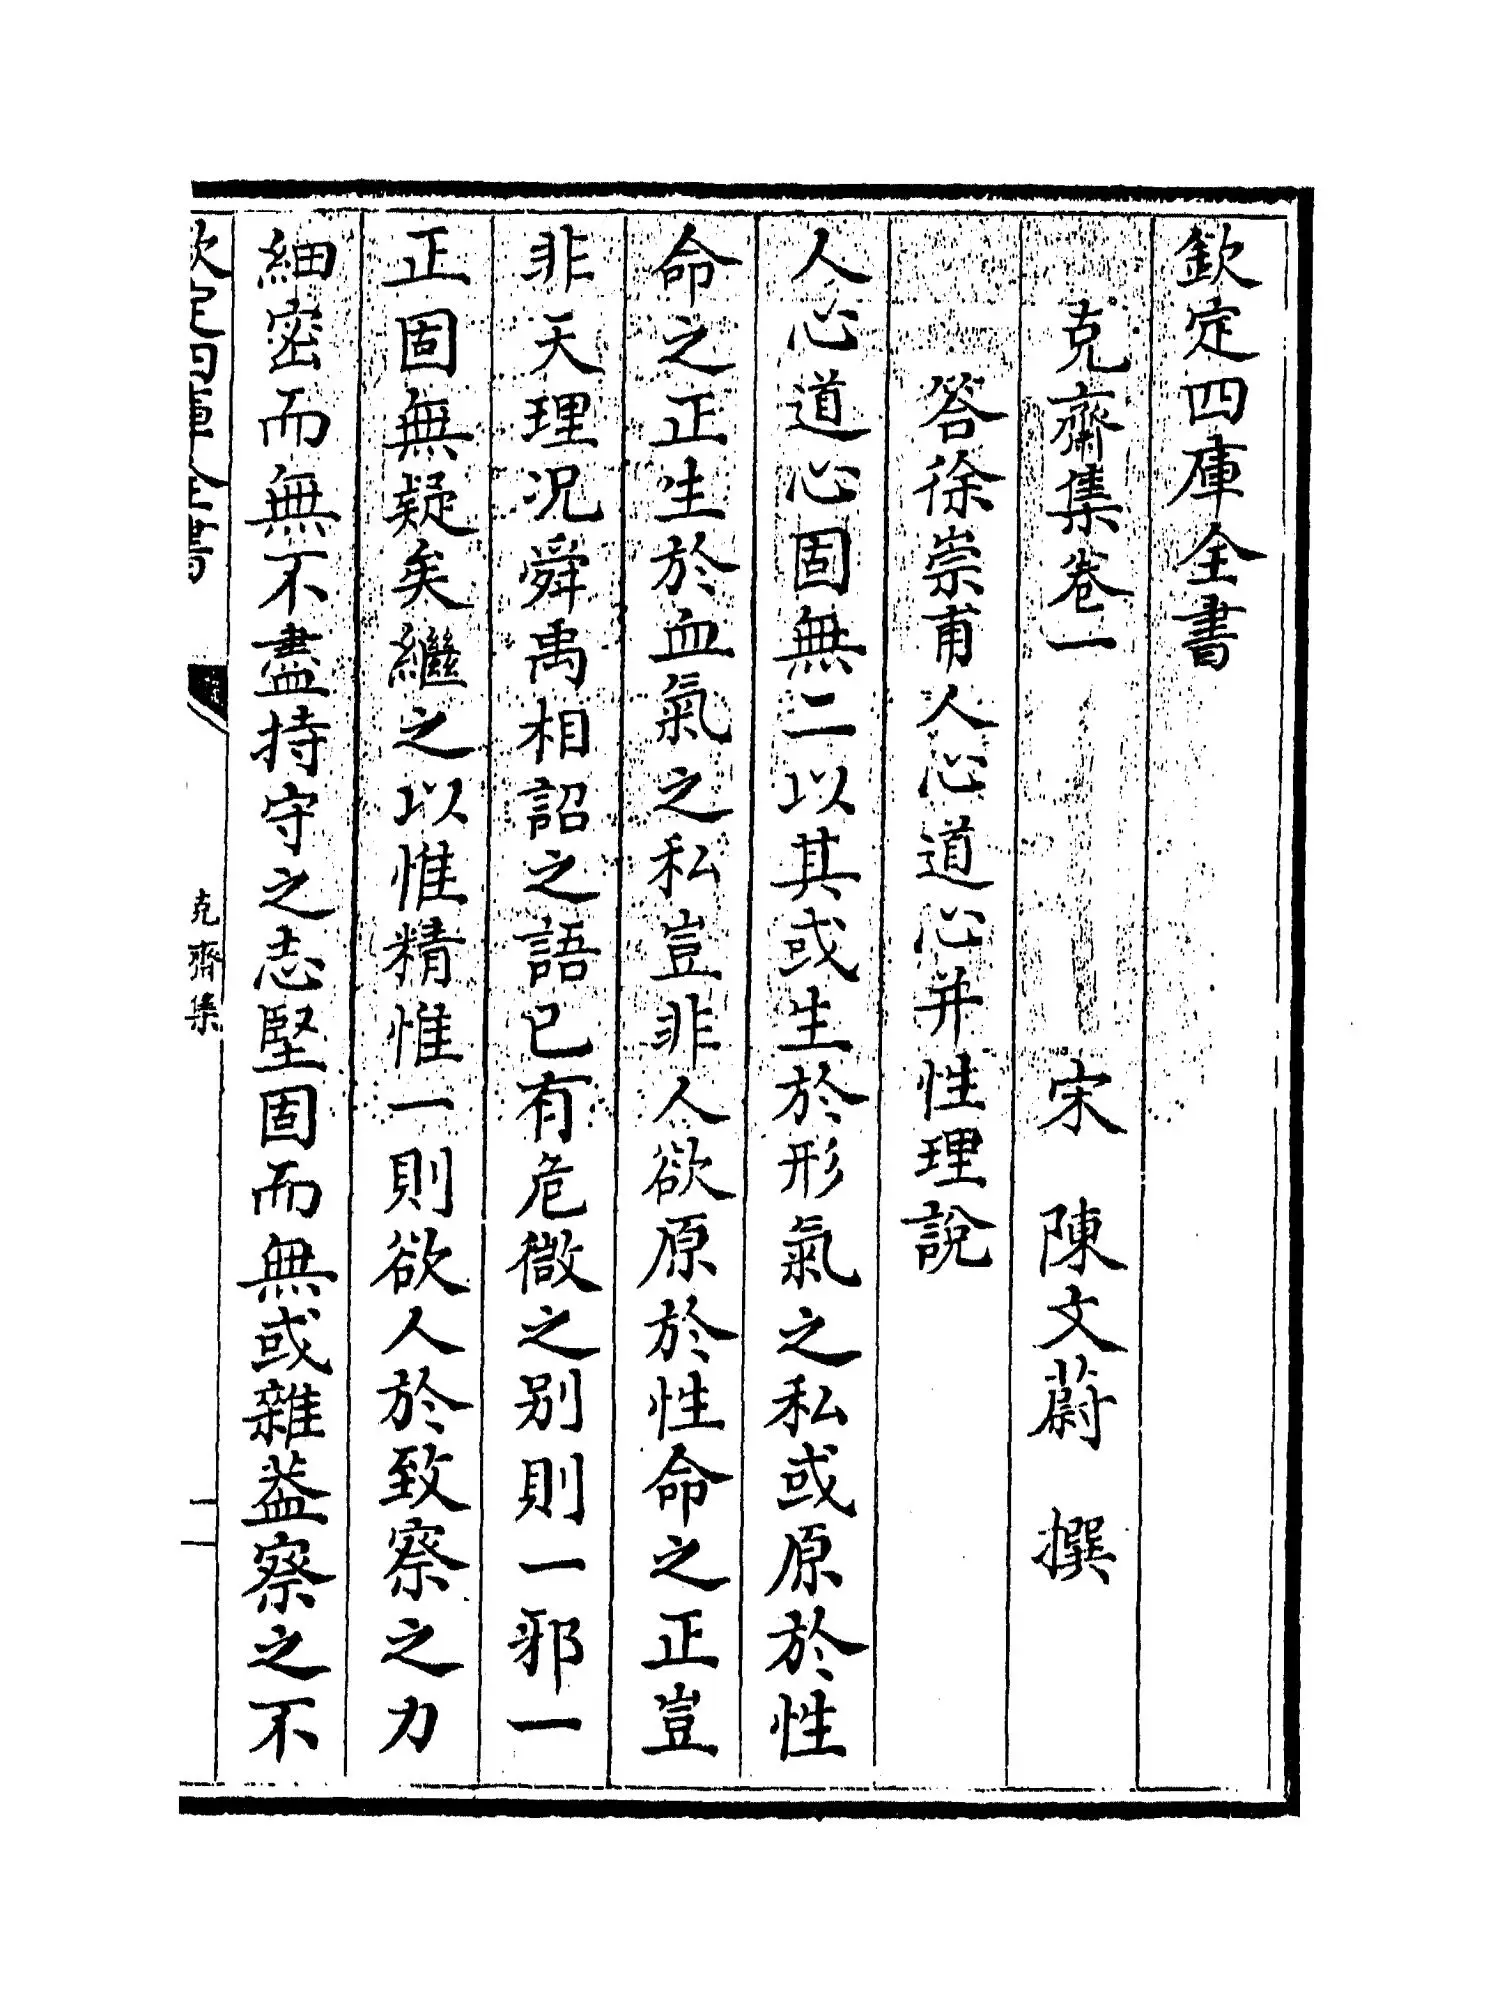 欽定四庫全書
克齋集卷一　宋　陳文蔚　撰
答徐崇甫人心道心并性理說
人心道心固無二以其或生於形氣之私或原於性
命之正生於血氣之私豈非人欲原於性命之正豈
非天理況舜禹相詔之語已有危微之别則一邪一
正固無疑矣繼之以惟精惟一則欲人於致察之力
細密而無不盡持守之志堅固而無或雜葢察之不
欽定四庫全書
克齋集
一